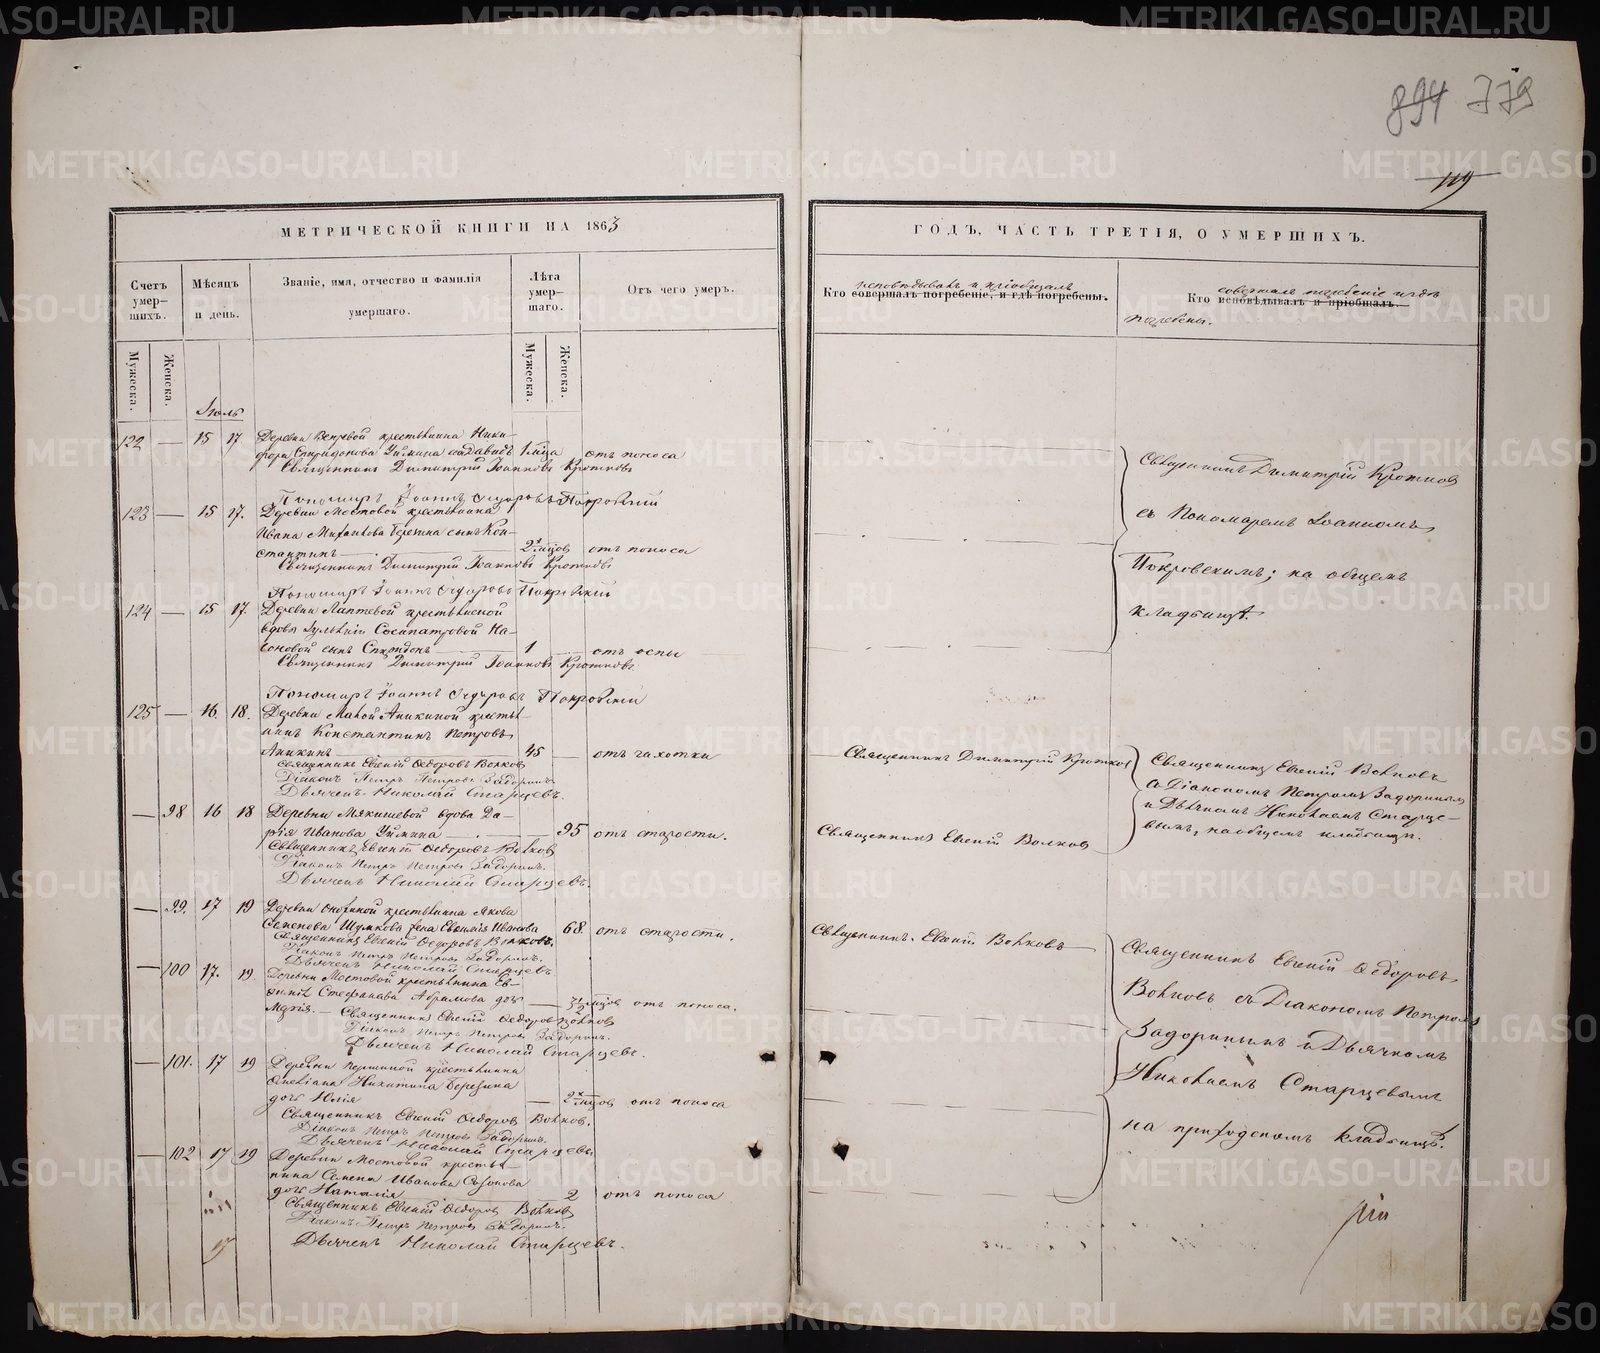 894 779
119
МЕТРИЧЕСКОЙ КНИГИ НА 1863
ГОДЪ, ЧАСТЬ ТРЕТІЯ, О УМЕРШИХЪ.
Счетъ умер-
шихъ.
Мѣсяцъ
и день.
Званіе, имя, отчество и фамилія
умершаго.
Лѣта
умер-
шаго.
Отъ чего умеръ.
исповѣдывалъ и пріобщалъ
Кто совершалъ погребеніе, и гдѣ погребены.
совершалъ погребеніе и гдѣ
Кто исповѣдывалъ и пріобщалъ.
погребены.
Мужеска.
Женска.
Мужеска.
Женска.
Іюль
122 — 15 17 Деревни крестьянина Ники-
фора Спиридонова сынъ Давидъ 1 мѣца отъ поноса
Священникъ Димитрій Іоанновъ Кротковъ
Пономарь Іоаннъ Ѳедоровъ Покровскій
123 — 15 17. Деревни Мостовой крестьянина
Ивана Михайлова Березина сынъ Кон-
стантинъ 2 мѣцов отъ поноса
Священникъ Димитрій Іоанновъ Кротковъ
Пономарь Іоаннъ Ѳедоровъ Покровскій
124 — 15 17. Деревни Лаптевой крестьянской
вдовы Сосипатровой
сынъ Спиридонъ 1 отъ оспы
Священникъ Димитрій Іоанновъ Кротковъ
Пономарь Іоаннъ Ѳедоровъ Покровскій
Священникъ Димитрій Кротков
съ Пономаремъ Іоанномъ
Покровскимъ; на общемъ
кладбищѣ.
125 — 16. 18. Деревни Малой Аникиной кресть-
янинъ Константинъ Петровъ
Аникинъ 45 — отъ чахотки
Священникъ Евгеній Ѳедоровъ Волков
Діаконъ Петръ Петровъ Задоринъ
Дьячекъ Николай Старцевъ.
Священникъ Димитрій Кротков
— 98 16 18 Деревни Мякишевой вдова Да-
рія Иванова Уймина 95 отъ старости.
Священникъ Евгеній Ѳедоровъ Волков
Діаконъ Петръ Петровъ Задоринъ.
Дьячекъ Николай Старцевъ.
Священникъ Евгеній Волков
Священникъ Евгеній Волковъ
съ Діакономъ Петромъ Задоринымъ
и Дьячкомъ Николаемъ Старце-
вымъ, на общемъ кладбищѣ.
— 99. 17 19 Деревни крестьянина Якова
Семенова Шумкова жена Евгенія Иванова 68 отъ старости.
Священникъ Евгеній Ѳедоровъ Волковъ.
Діаконъ Петръ Петровъ Задоринъ.
Дьячекъ Николай Старцевъ
Священникъ. Евгеній Волковъ
— 100 17. 19. Деревни Мостовой крестьянина Ев-
фимія Стефанова Абрамова дочь
Марія. — 3 1/2 мѣцов отъ поноса.
Священникъ Евгеній Ѳедоровъ Волков
Діаконъ Петръ Петровъ Задоринъ.
Дьячекъ Николай Старцевъ.
— 101. 17 19 Деревни Першиной крестьянина
Никитина Березина
дочь Юлія — 2 мѣцов отъ поноса
Священникъ Евгеній Ѳедоров Волков.
Діаконъ Петръ Петровъ Задоринъ.
Дьячекъ Николай Старцевъ
— 102 17 19 Деревни Мостовой кресть-
янина Семена Иванова Сазонова
дочь Наталія 2 отъ поноса
Священникъ Евгеній Ѳедоров Волков
Діаконъ Петръ Петровъ Задоринъ.
Дьячекъ Николай Старцевъ.
Священникъ Евгеній Ѳедоровъ
Волковъ съ Діакономъ Петромъ
Задоринымъ и Дьячкомъ
Николаемъ Старцевымъ
на приходскомъ кладбищѣ.
METRIKI.GASO-URAL.RU